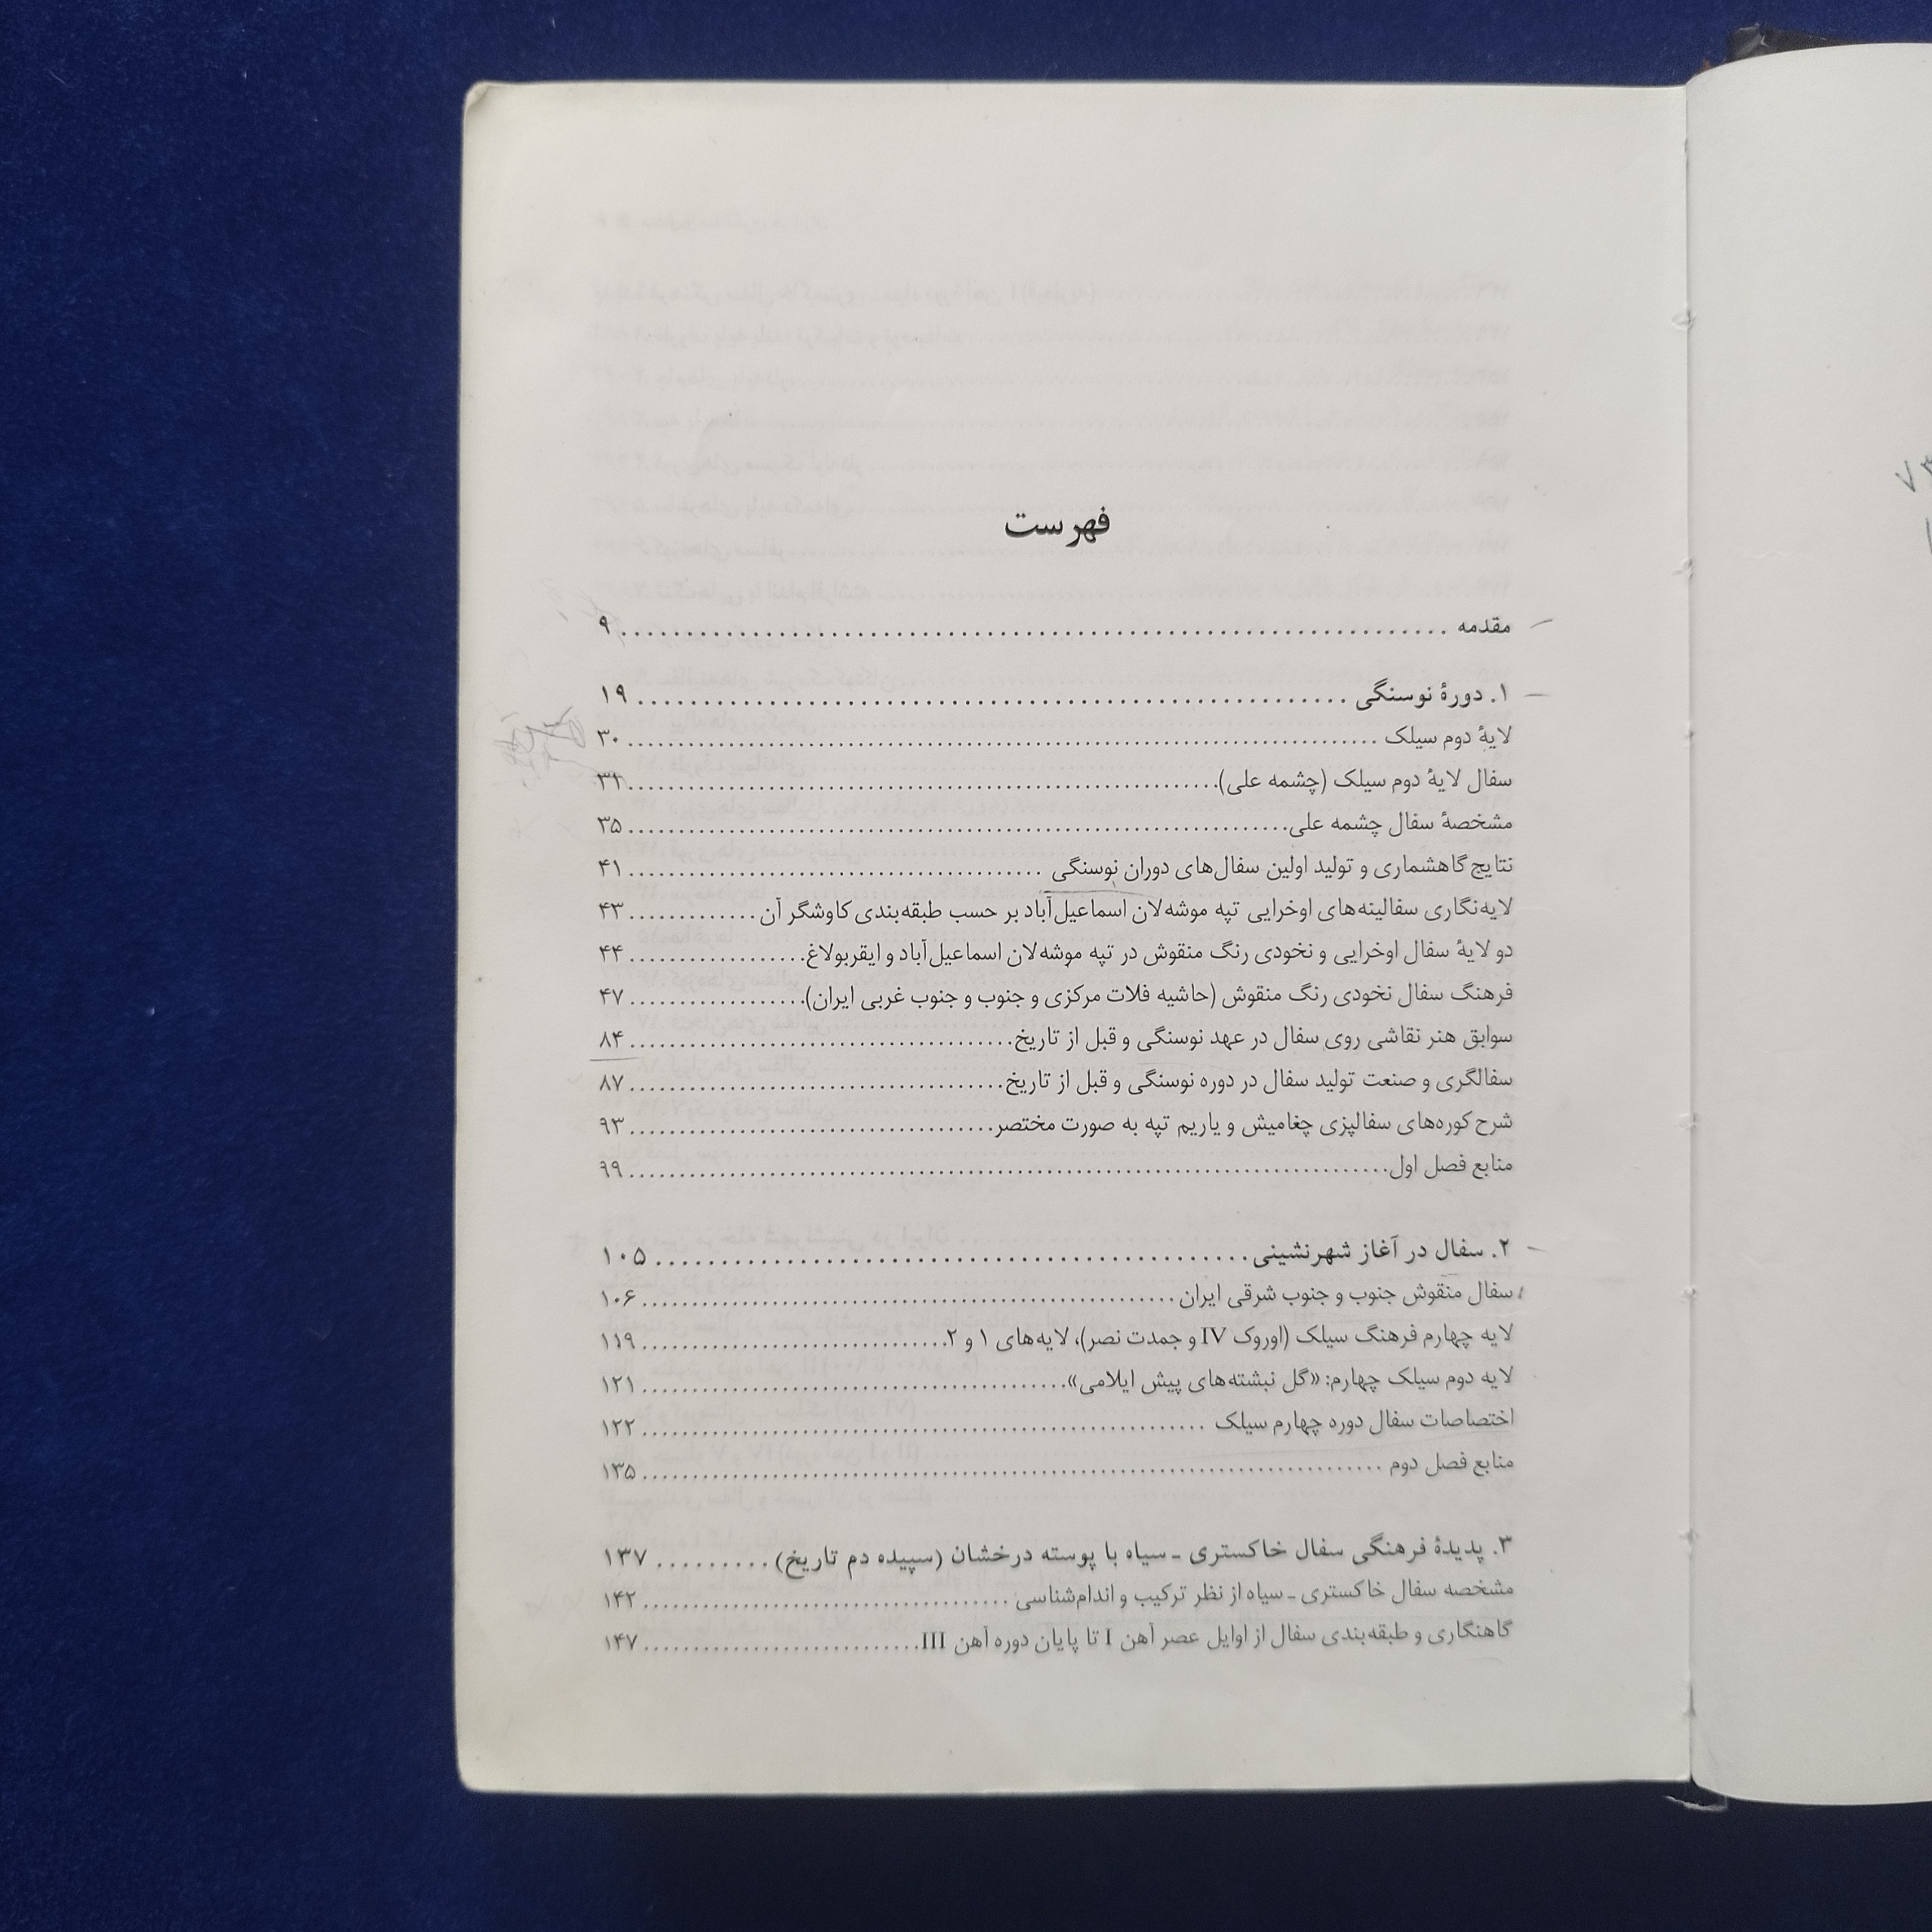 فهرست
مقدمه ........ ۹
۱. دورهٔ نوسنگی ........ ۱۹
لایهٔ دوم سیلک ........ ۳۰
سفال لایهٔ دوم سیلک (چشمه علی) ........ ۳۱
مشخصهٔ سفال چشمه علی ........ ۳۵
نتایج گاهشماری و تولید اولین سفال‌های دوران نوسنگی ........ ۴۱
لایه‌نگاری سفالینه‌های اوخرایی تپه موشه‌لان اسماعیل‌آباد بر حسب طبقه‌بندی کاوشگر آن ........ ۴۳
دو لایهٔ سفال اوخرایی و نخودی رنگ منقوش در تپه موشه‌لان اسماعیل‌آباد و ایقربولاغ ........ ۴۴
فرهنگ سفال نخودی رنگ منقوش (حاشیه فلات مرکزی و جنوب و جنوب غربی ایران) ........ ۴۷
سوابق هنر نقاشی روی سفال در عهد نوسنگی و قبل از تاریخ ........ ۸۴
سفالگری و صنعت تولید سفال در دوره نوسنگی و قبل از تاریخ ........ ۸۷
شرح کوره‌های سفالپزی چغامیش و یاریم تپه به صورت مختصر ........ ۹۳
منابع فصل اول ........ ۹۹
۲. سفال در آغاز شهرنشینی ........ ۱۰۵
سفال منقوش جنوب و جنوب شرقی ایران ........ ۱۰۶
لایه چهارم فرهنگ سیلک (اوروک IV و جمدت نصر)، لایه‌های ۱ و ۲ ........ ۱۱۹
لایه دوم سیلک چهارم: «گل نبشته‌های پیش ایلامی» ........ ۱۲۱
اختصاصات سفال دوره چهارم سیلک ........ ۱۲۲
منابع فصل دوم ........ ۱۳۵
۳. پدیدهٔ فرهنگی سفال خاکستری ـ سیاه با پوسته درخشان (سپیده دم تاریخ) ........ ۱۳۷
مشخصه سفال خاکستری ـ سیاه از نظر ترکیب و اندام‌شناسی ........ ۱۴۲
گاهنگاری و طبقه‌بندی سفال از اوایل عصر آهن I تا پایان دوره آهن III ........ ۱۴۷